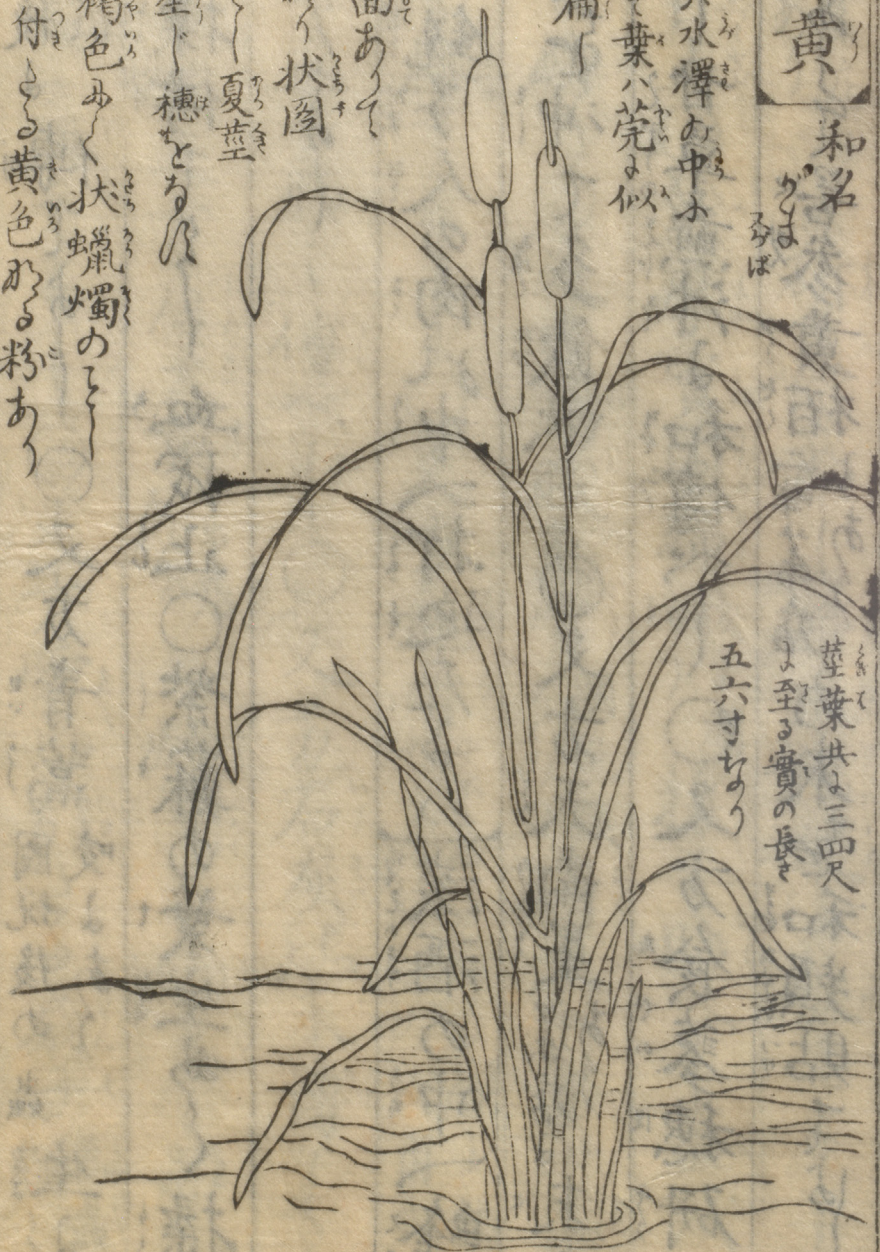 黄
和名
がま
みすば
水澤の中に
葉ハ莞に似
扁し
面ありて
り状圓
し夏莖
生じ穂をなす
褐色にして状蠟燭のごとし
付たる黄色なる粉あり
莖葉共に三四尺
に至る實の長さ
五六寸なり